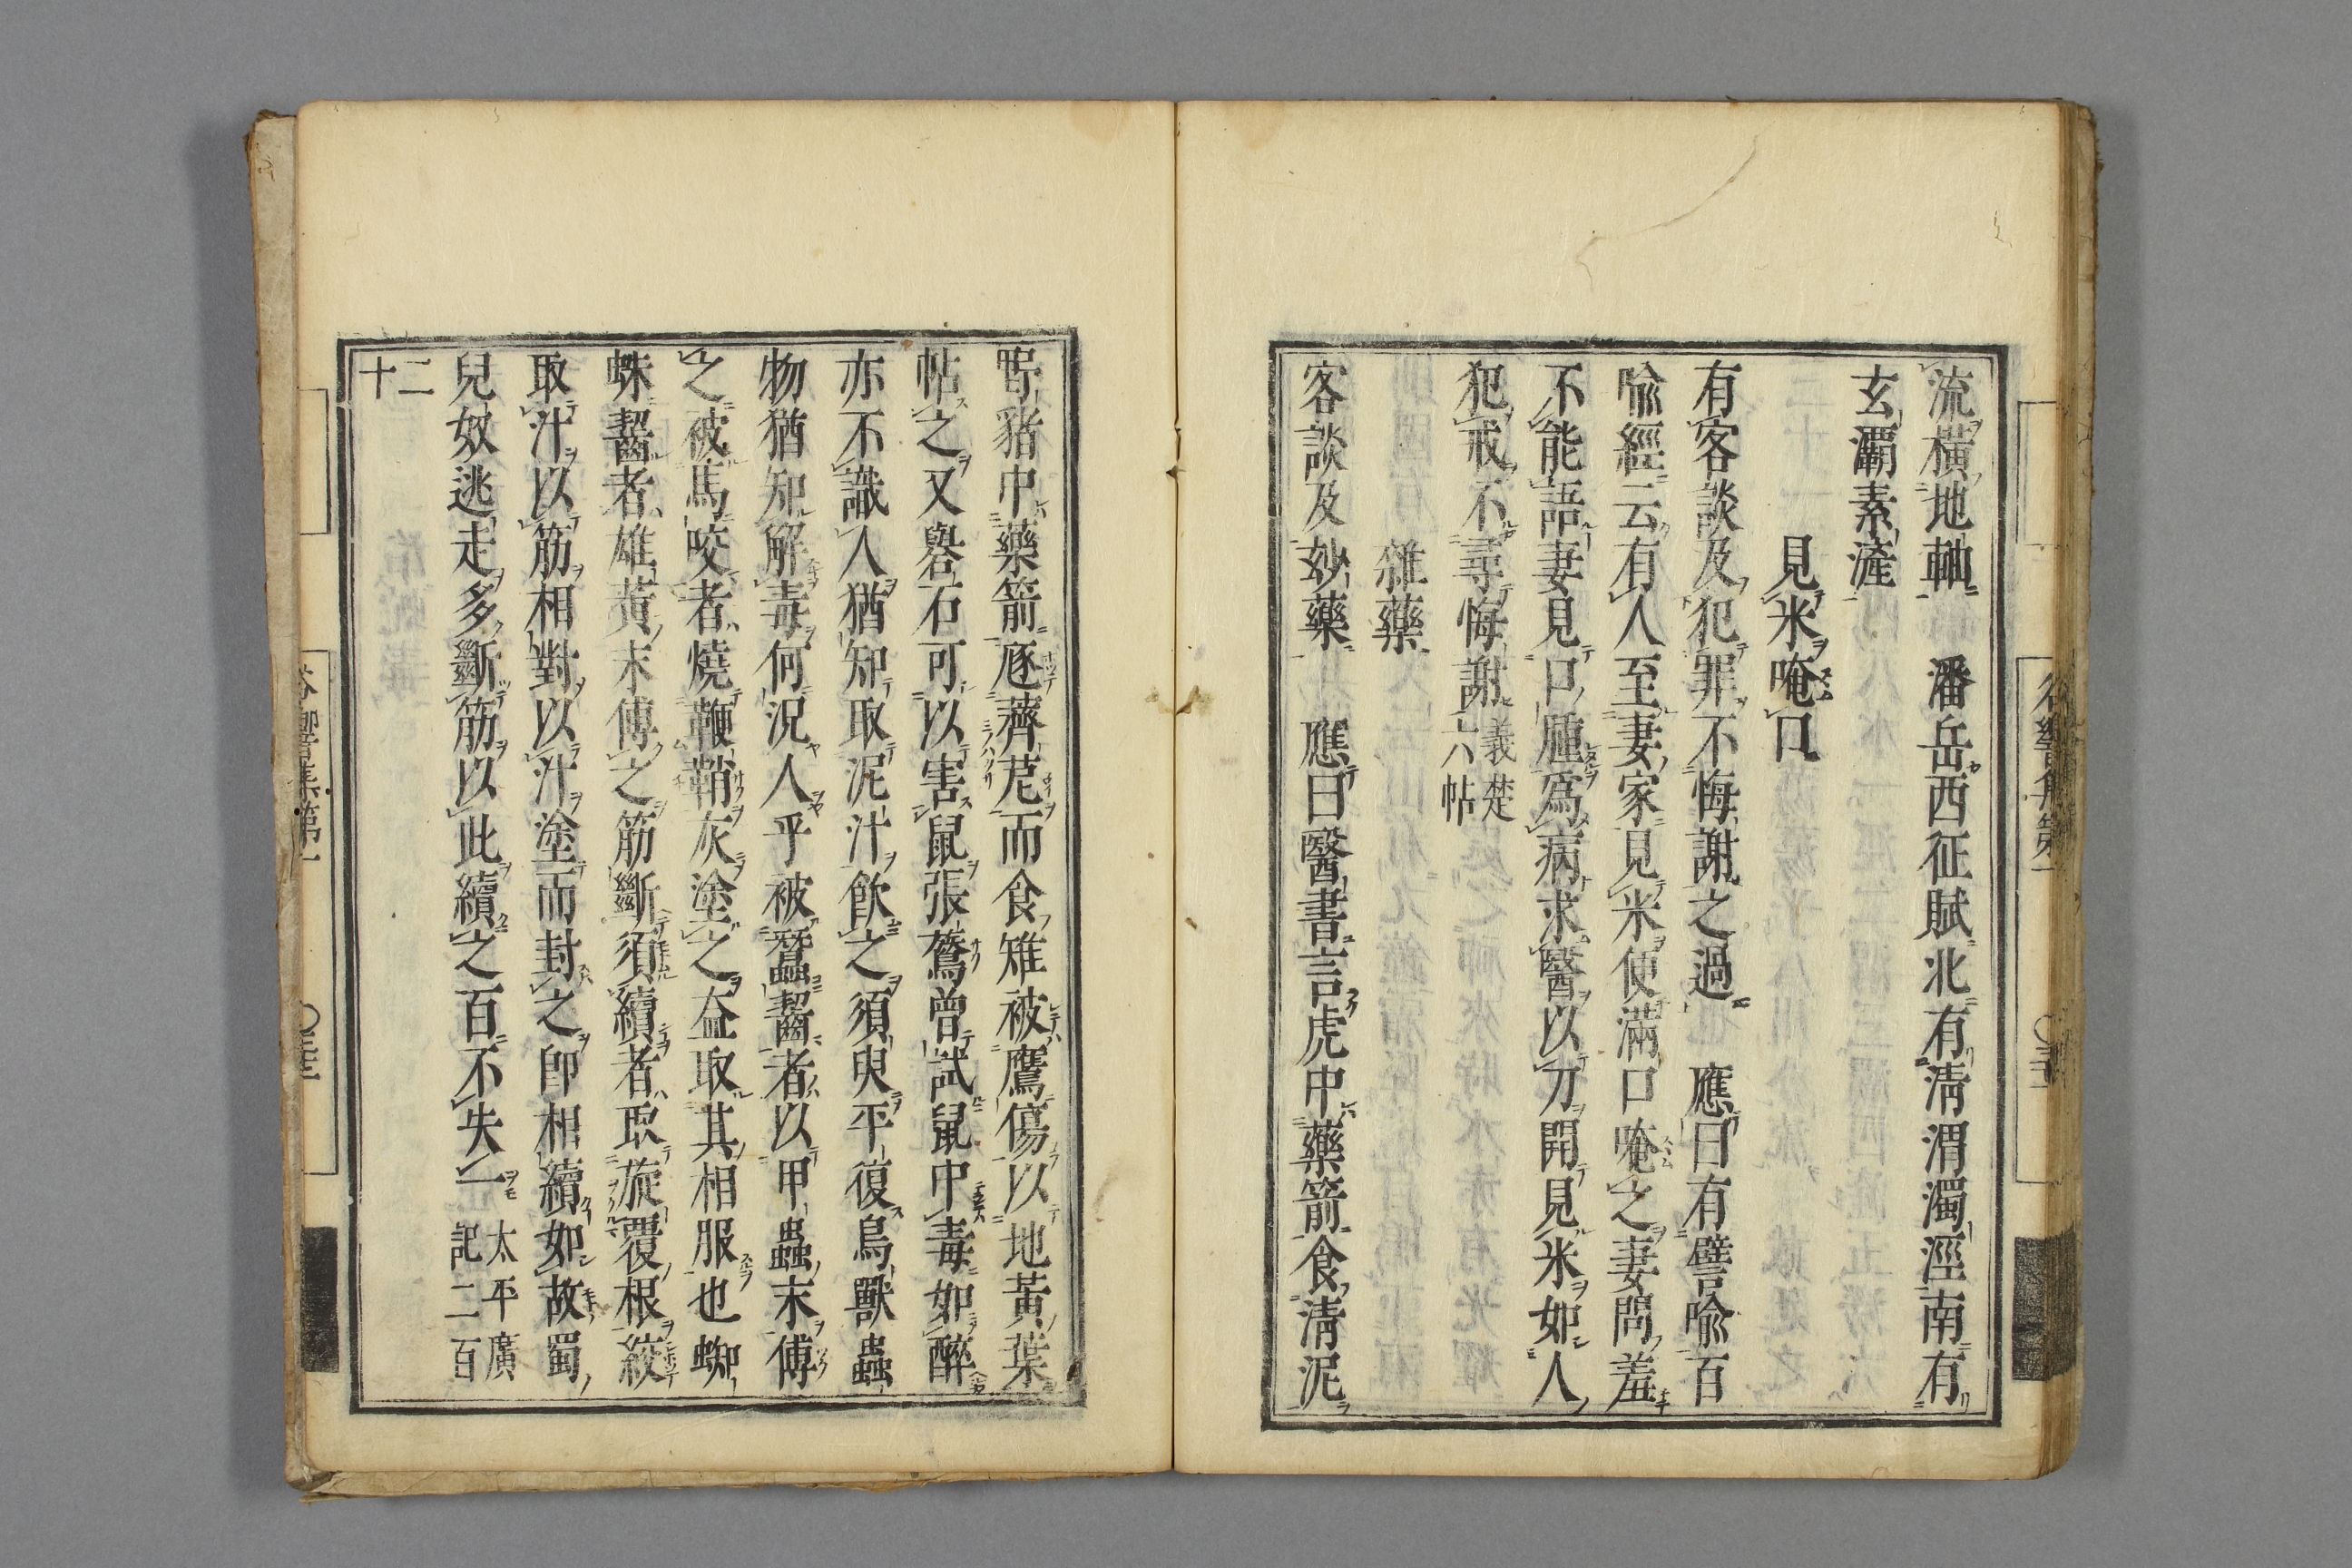 流横地軸　潘岳西征賦北有淸渭濁涇南有
玄灞素滻
見米唵口
有客談及犯罪不悔謝之過　應曰有譬喩百
喩經云有人至妻家見米使滿口唵之妻問羞
不能語妻見口腫爲病求醫以刀開見米如人
犯戒不尋悔謝義楚六帖
雜藥
客談及妙藥　應曰醫書言虎中藥箭食淸泥
豬中藥箭豗薺苨而食雉被鷹傷以地黃葉
帖之又礜石可以害鼠張鷟曾試鼠中毒如醉
亦不識人猶知取泥汁飮之須臾平復鳥獸蟲
物猶知解毒何況人乎被蠶齧者以甲蟲末傅
之被馬咬者燒鞭鞘灰塗之盖取其相服也蜘
蛛齧者雄黃末傅之筋斷須續者取旋覆根絞
取汁以筋相對以汁塗而封之卽相續如故蜀
兒奴逃走多斷筋以此續之百不失一太平廣記二百
二十
谷響集第一